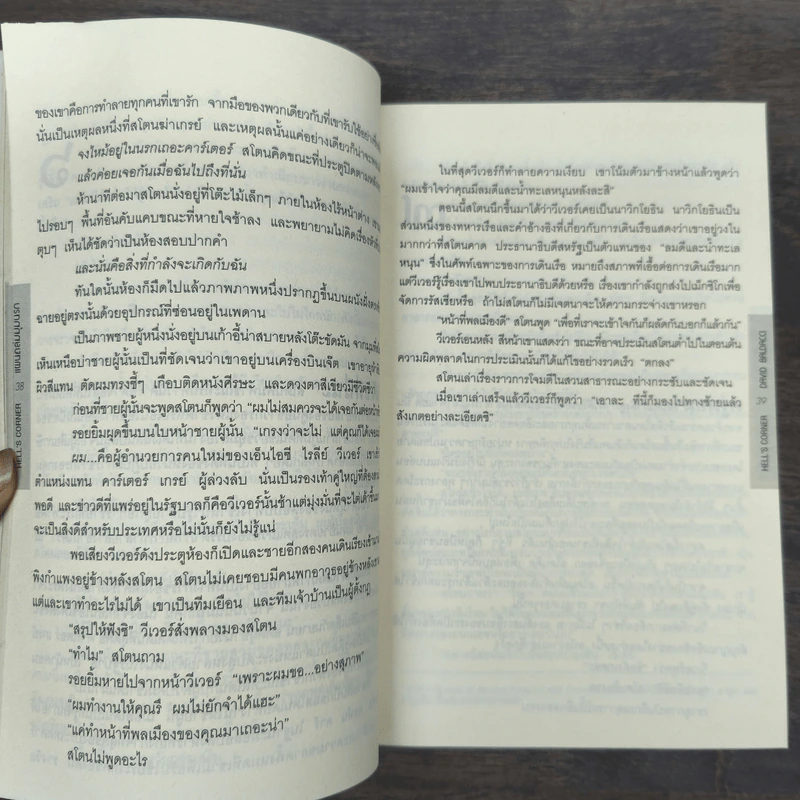 ของเขาคือการทำลายทุกคนที่เขารัก จากมือของพวกเดียวกับที่เขารับใช้อย่าง
นั่นเป็นเหตุผลหนึ่งที่สโตนฆ่าเกรย์ และเหตุผลนั้นแค่อย่างเดียวก็น่าจะพอ
จงไหม้อยู่ในนรกเถอะคาร์เตอร์ สโตนคิดขณะที่ประตูปิดตามหลัง
แล้วค่อยเจอกันเมื่อฉันไปถึงที่นั่น
ห้านาทีต่อมาสโตนนั่งอยู่ที่โต๊ะไม้เล็กๆ ภายในห้องไร้หน้าต่าง เขา
ไปรอบๆ พื้นที่อันคับแคบขณะที่หายใจช้าลง และพยายามไม่คิดเรื่องหัวใจ
ตุบๆ เห็นได้ชัดว่าเป็นห้องสอบปากคำ
และนั่นคือสิ่งที่กำลังจะเกิดกับฉัน
ทันใดนั้นห้องก็มืดไปแล้วภาพภาพหนึ่งปรากฏขึ้นบนผนังฝั่ง
ฉายอยู่ตรงนั้นด้วยอุปกรณ์ที่ซ่อนอยู่ในเพดาน
เป็นภาพชายผู้หนึ่งนั่งอยู่บนเก้าอี้น่าสบายหลังโต๊ะขัดมัน จากมุมที่
เห็นเหนือบ่าชายผู้นั้นเป็นที่ชัดเจนว่าเขาอยู่บนเครื่องบินเจ็ต เขาอายุ
ผิวสีแทน ตัดผมทรงชี้ๆ เกือบติดหนังศีรษะ และดวงตาสีเขียวมีชีวิตชีวา
ก่อนที่ชายผู้นั้นจะพูดสโตนก็พูดว่า “ผมไม่สมควรจะได้เจอกันต่อหน้า
รอยยิ้มผุดขึ้นบนใบหน้าชายผู้นั้น “เกรงว่าจะไม่ แต่คุณก็ได้เจอ
ผม...คือผู้อำนวยการคนใหม่ของเอ็นไอซี ไรลีย์ วีเวอร์ เขาเข้า
ตำแหน่งแทน คาร์เตอร์ เกรย์ ผู้ล่วงลับ นั่นเป็นรองเท้าคู่ใหญ่ที่ต้อง
พอดี และข่าวดีที่แพร่อยู่ในรัฐบาลก็คือวีเวอร์นั้นช้าแต่มุ่งมั่นที่จะไต่เต้าขึ้น
จะเป็นสิ่งดีสำหรับประเทศหรือไม่นั้นก็ยังไม่รู้แน่
พอเสียงวีเวอร์ดังประตูห้องก็เปิดและชายอีกสองคนเดินเรียงเข้ามา
พิงกำแพงอยู่ข้างหลังสโตน สโตนไม่เคยชอบมีคนพกอาวุธอยู่ข้างหลังเขา
แต่และเขาทำอะไรไม่ได้ เขาเป็นทีมเยือน และทีมเจ้าบ้านเป็นผู้ตั้งกฎ
“สรุปให้ฟังซิ” วีเวอร์สั่งพลางมองสโตน
“ทำไม” สโตนถาม
รอยยิ้มหายไปจากหน้าวีเวอร์ “เพราะผมขอ...อย่างสุภาพ”
“ผมทำงานให้คุณรึ ผมไม่ยักจำได้แฮะ”
“แค่ทำหน้าที่พลเมืองของคุณมาเถอะน่า”
สโตนไม่พูดอะไร
38
HELL'S CORNER
ในที่สุดวีเวอร์ก็ทำลายความเงียบ เขาโน้มตัวมาข้างหน้าแล้วพูดว่า
“ผมเข้าใจว่าคุณมีลมดีและน้ำทะเลหนุนหลังละสิ”
ตอนนี้สโตนนึกขึ้นมาได้ว่าวีเวอร์เคยเป็นนาวิกโยธิน นาวิกโยธินเป็น
ส่วนหนึ่งของทหารเรือและคำอ้างอิงที่เกี่ยวกับการเดินเรือแสดงว่าเขาอยู่วงใน
มากกว่าที่สโตนคาด ประธานาธิบดีสหรัฐเป็นตัวแทนของ “ลมดีและน้ำทะเล
หนุน” ซึ่งในศัพท์เฉพาะของการเดินเรือ หมายถึงสภาพที่เอื้อต่อการเดินเรือมาก
แต่วีเวอร์รู้หรือว่าเขาไปพบประธานาธิบดีด้วยหรือ เรื่องเขากำลังถูกส่งไปเม็กซิโกเพื่อ
จัดการรัสเซียหรือ ถ้าไม่สโตนก็ไม่มีเจตนาจะให้ความกระจ่างเขาหรอก
“หน้าที่พลเมืองดี” สโตนพูด “เพื่อที่เราจะเข้าใจกันก็ผลัดกันบอกก็แล้วกัน”
วีเวอร์เอนหลัง สีหน้าเขาแสดงว่า ขณะที่อาจประเมินสโตนต่ำไปในตอนต้น
ความผิดพลาดในการประเมินนั้นก็ได้แก้ไขอย่างรวดเร็ว “ตกลง”
สโตนเล่าเรื่องราวการโจมตีในสวนสาธารณะอย่างกระชับและชัดเจน
เมื่อเขาเล่าเสร็จแล้ววีเวอร์ก็พูดว่า “เอาละ ทีนี้ก็มองไปทางซ้ายแล้ว
สังเกตอย่างละเอียดซิ”
DAVID BALDACCI
HELL'S CORNER